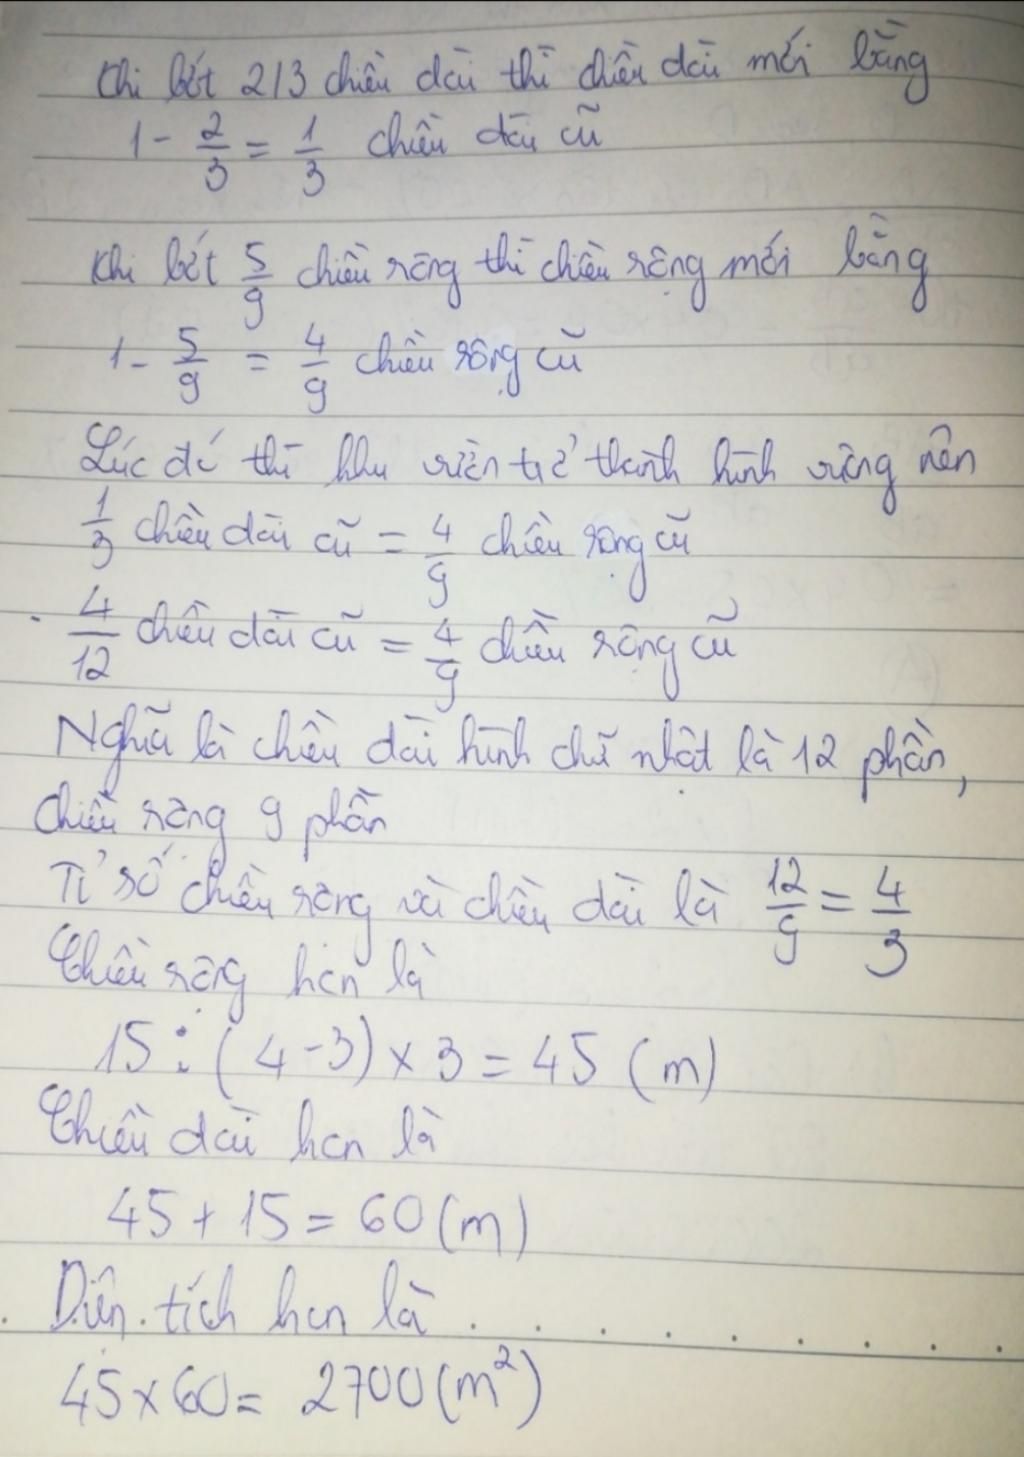 Khi bớt 2/3 chiều dài thì chiều dài mới bằng
1 - 2/3 = 1/3 chiều dài cũ
Khi bớt 5/9 chiều rộng thì chiều rộng mới bằng
1 - 5/9 = 4/9 chiều rộng cũ
Lúc đó thì khu vườn trở thành hình vuông nên
1/3 chiều dài cũ = 4/9 chiều rộng cũ
4/12 chiều dài cũ = 4/9 chiều rộng cũ
Nghĩa là chiều dài hình chữ nhật là 12 phần,
chiều rộng 9 phần
Tỉ số chiều rộng và chiều dài là 12/9 = 4/3
Chiều rộng hcn là
15 : (4-3) x 3 = 45 (m)
Chiều dài hcn là
45 + 15 = 60 (m)
Diện tích hcn là
45 x 60 = 2700 (m²)